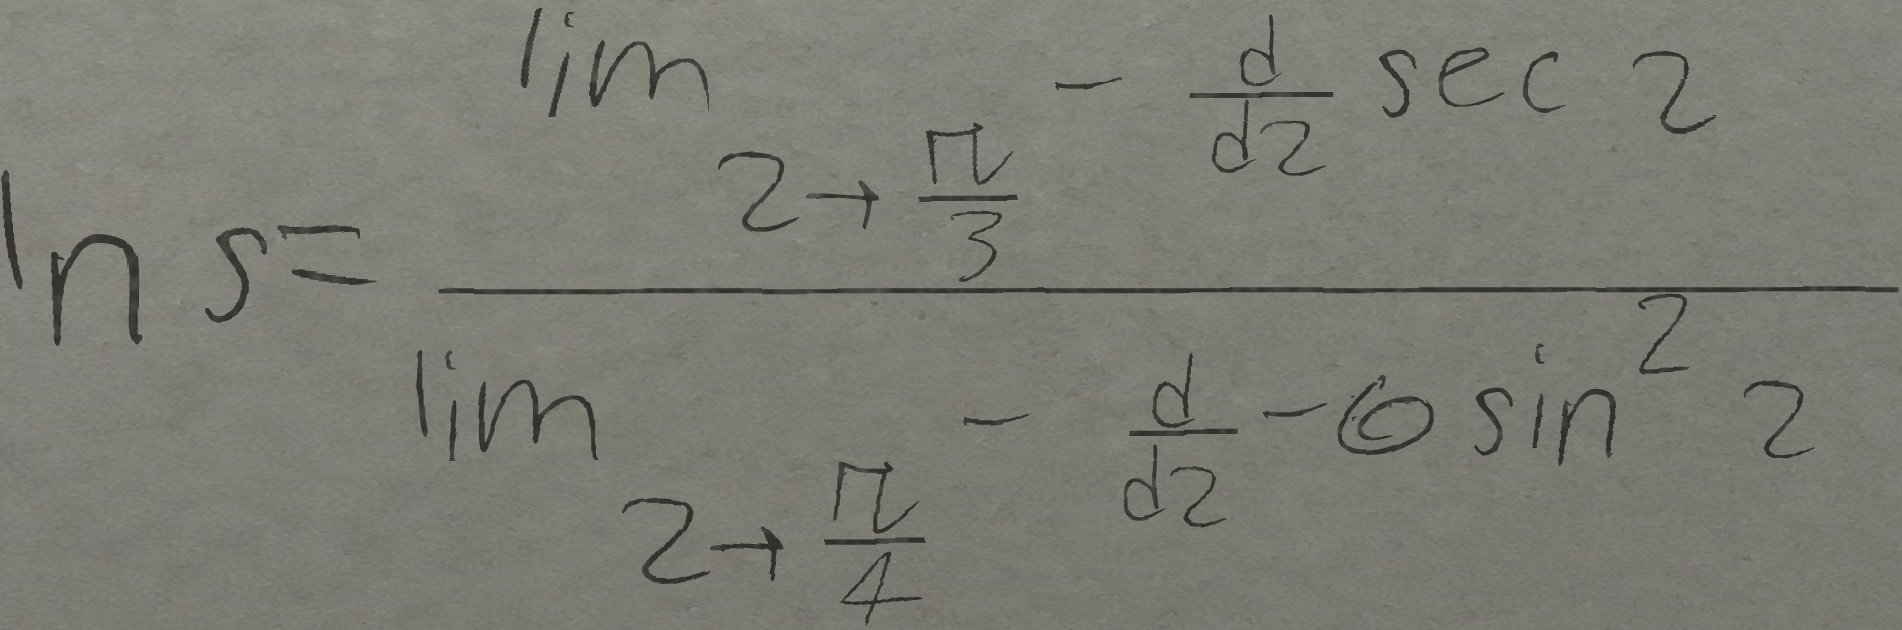 ln s = \frac{\lim_{z \to \frac{\pi}{3}} - \frac{d}{dz} \sec z}{\lim_{z \to \frac{\pi}{4}} - \frac{d}{dz} - 6 \sin^2 z}